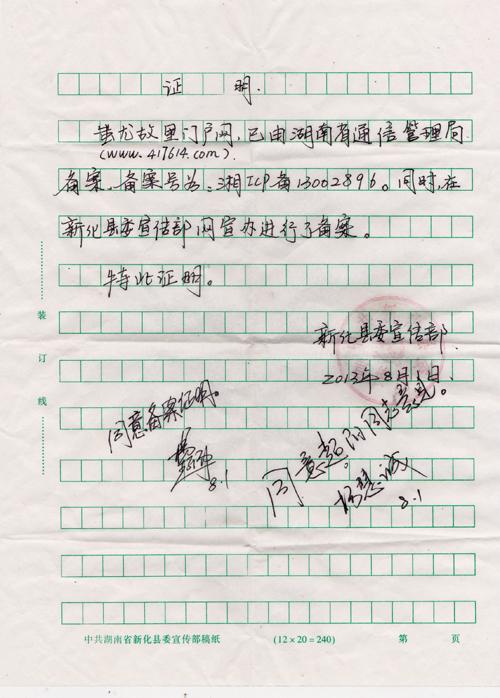 证 明.
蚩尤故里门户网,已由湖南省通信管理局
(www.417614.com)
备案、备案号为:湘ICP备13002896。同时,在
新化县委宣传部网宣办进行了备案。
特此证明。
新化县委宣传部
2013年8月1日.
同意备案证明。
8.1
同意
同志意见。
8.1
装
订
线
中共湖南省新化县委宣传部稿纸 (12×20=240) 第 页